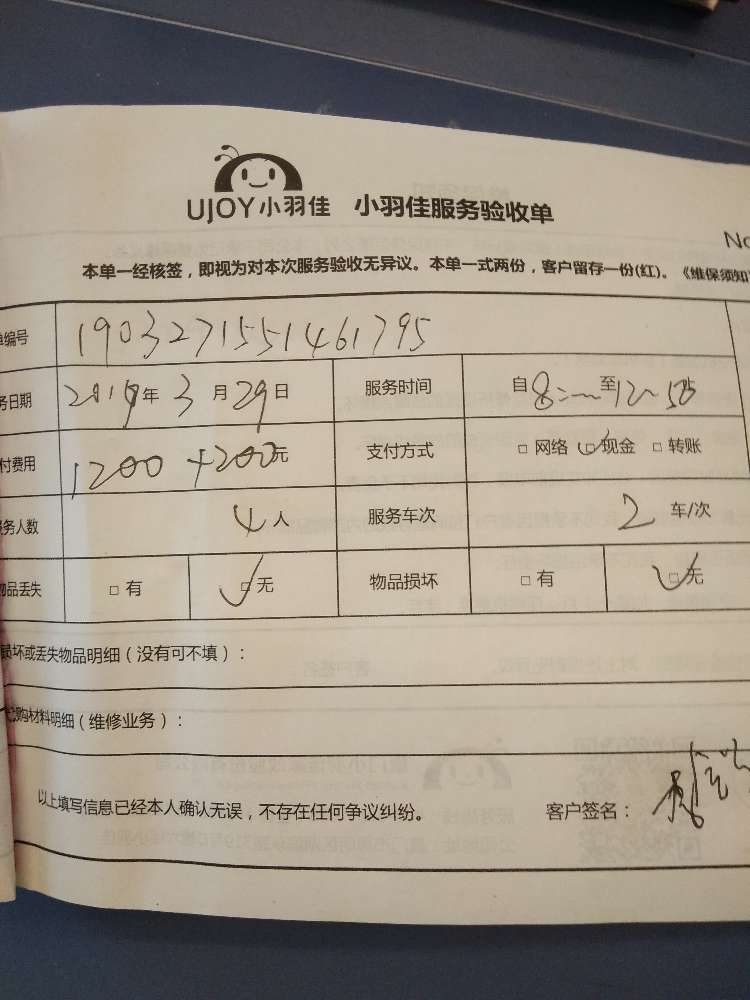 UJOY小羽佳 小羽佳服务验收单
No
本单一经核签，即视为对本次服务验收无异议。本单一式两份，客户留存一份(红)。《维保须知
单编号 19032715514617​95
务日期 2019年3月29日 服务时间 自8: 至12
付费用 1200+200元 支付方式 □网络 ☑现金 □转账
服务人数 4人 服务车次 2车/次
物品丢失 □有 ☑无 物品损坏 □有 ☑无
损坏或丢失物品明细（没有可不填）：
购材料明细（维修业务）：
以上填写信息已经本人确认无误，不存在任何争议纠纷。 客户签名：